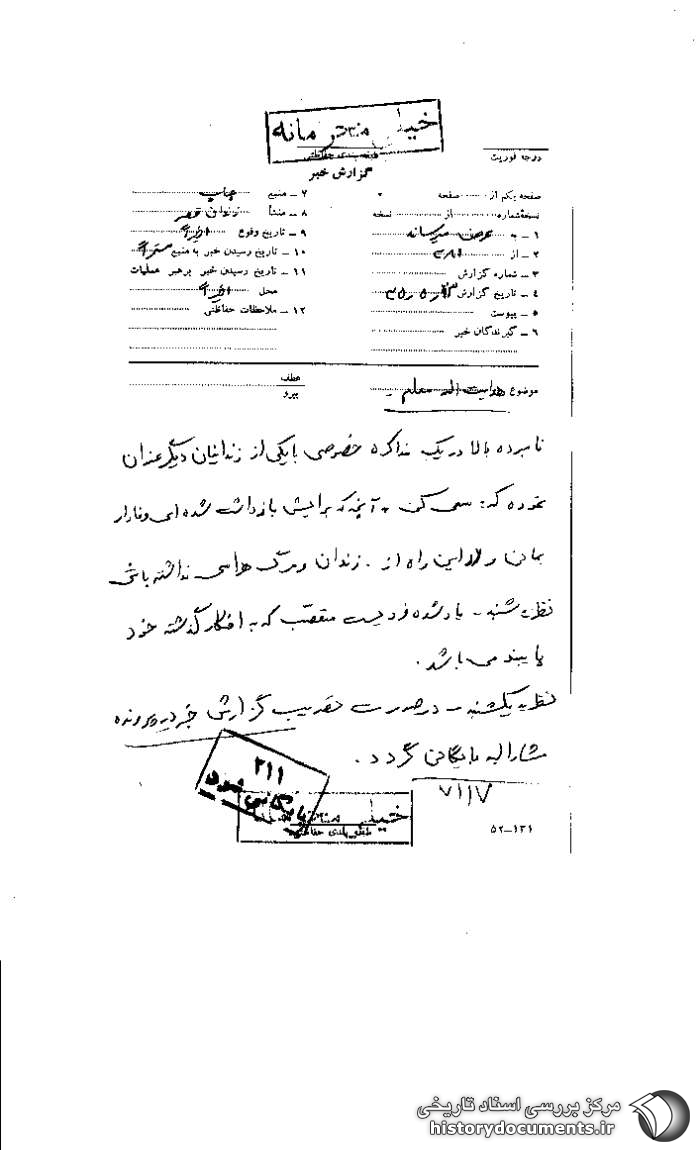 خیلی محرمانه
طبقه‌بندی حفاظتی
درجه فوریت
گزارش خبر
صفحه یکم از صفحه
نسخه شماره از نسخه
۱ – به
۲ – از ۳۸۱
۳ – شماره گزارش
۴ – تاریخ گزارش
۵ – پیوست
۶ – گیرندگان خبر
۷ – منبع چاپ
۸ – منشأ زندان قصر
۹ – تاریخ وقوع اخیراً
۱۰ – تاریخ رسیدن خبر به منبع
۱۱ – تاریخ رسیدن خبر برهبر عملیات
محل اخیراً
۱۲ – ملاحظات حفاظتی
موضوع هدایت اله معلم –
عطف
پیرو
نامبرده بالا در یک مذاکره خصوصی با یکی از زندانیان دیگر عنوان
نموده که: سعی کن به آنچه که برایش بازداشت شده‌ای وفادار
بمانی و در این راه از زندان و مرگ هراسی نداشته باشی
نظریه شنبه – یاد شده فردیست متعصب که به افکار گذشته خود
پایبند می باشد.
نظریه یکشنبه – در صورت تصویب گزارش خبر در پرونده
مشارالیه بایگانی گردد.
۷/۱/۷
۲۱۱
بایگانی شود
خیلی محرمانه
طبقه‌بندی حفاظتی
۵۲–۱۳۱
مرکز بررسی اسناد تاریخی
historydocuments.ir